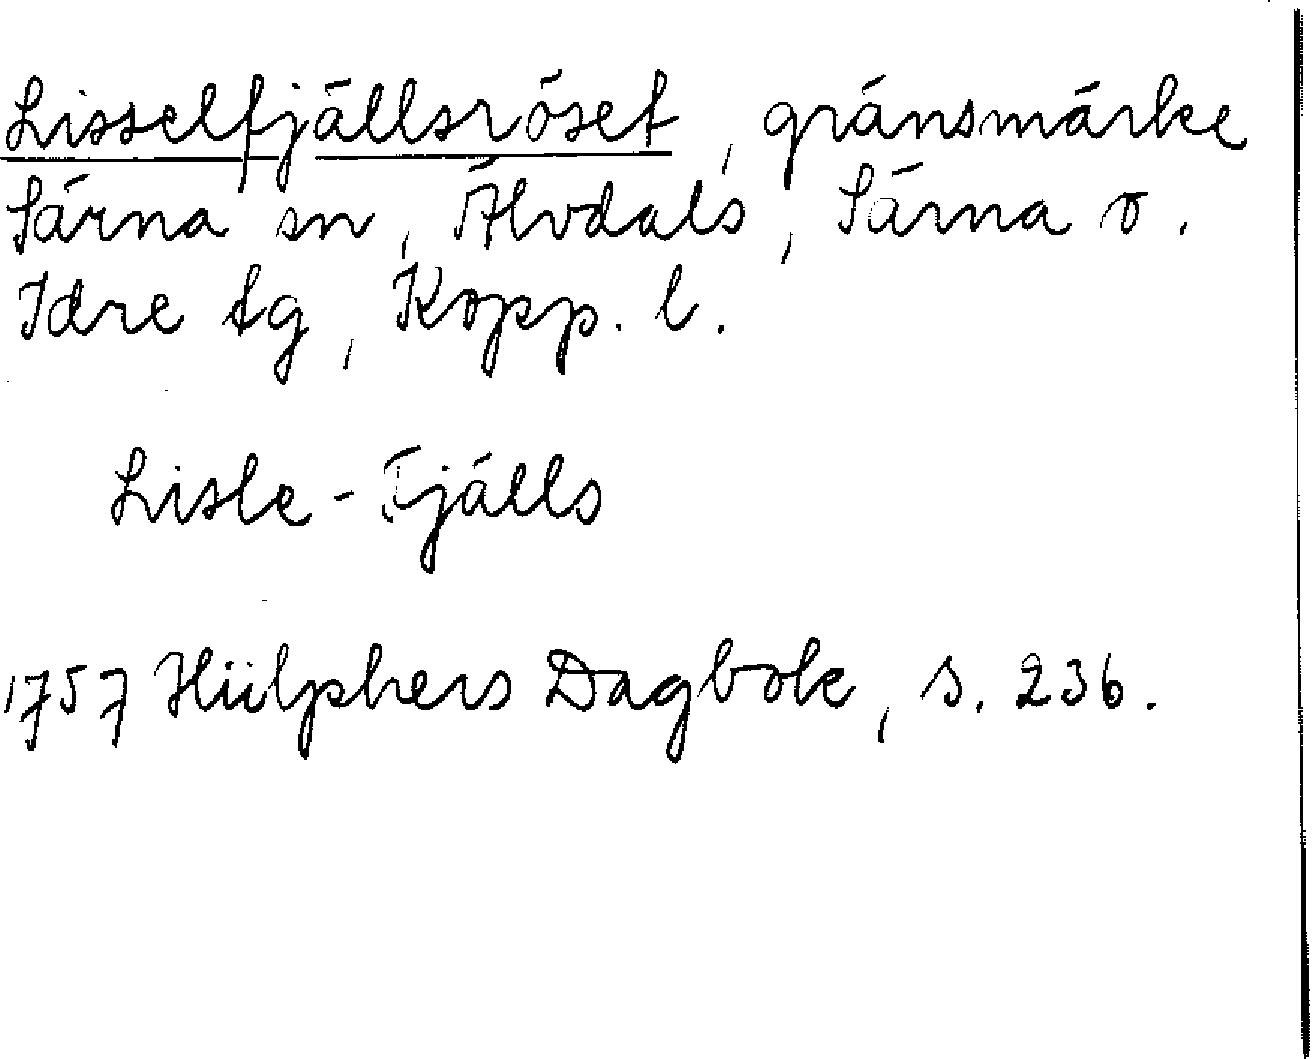 Lisselfjällsröset, gränsmärke
Särna sn, Älvdals, Särna o.
Idre tg, Kopp. l.
Lisle-Fjälls
1757 Hülphers Dagbok, s. 236.